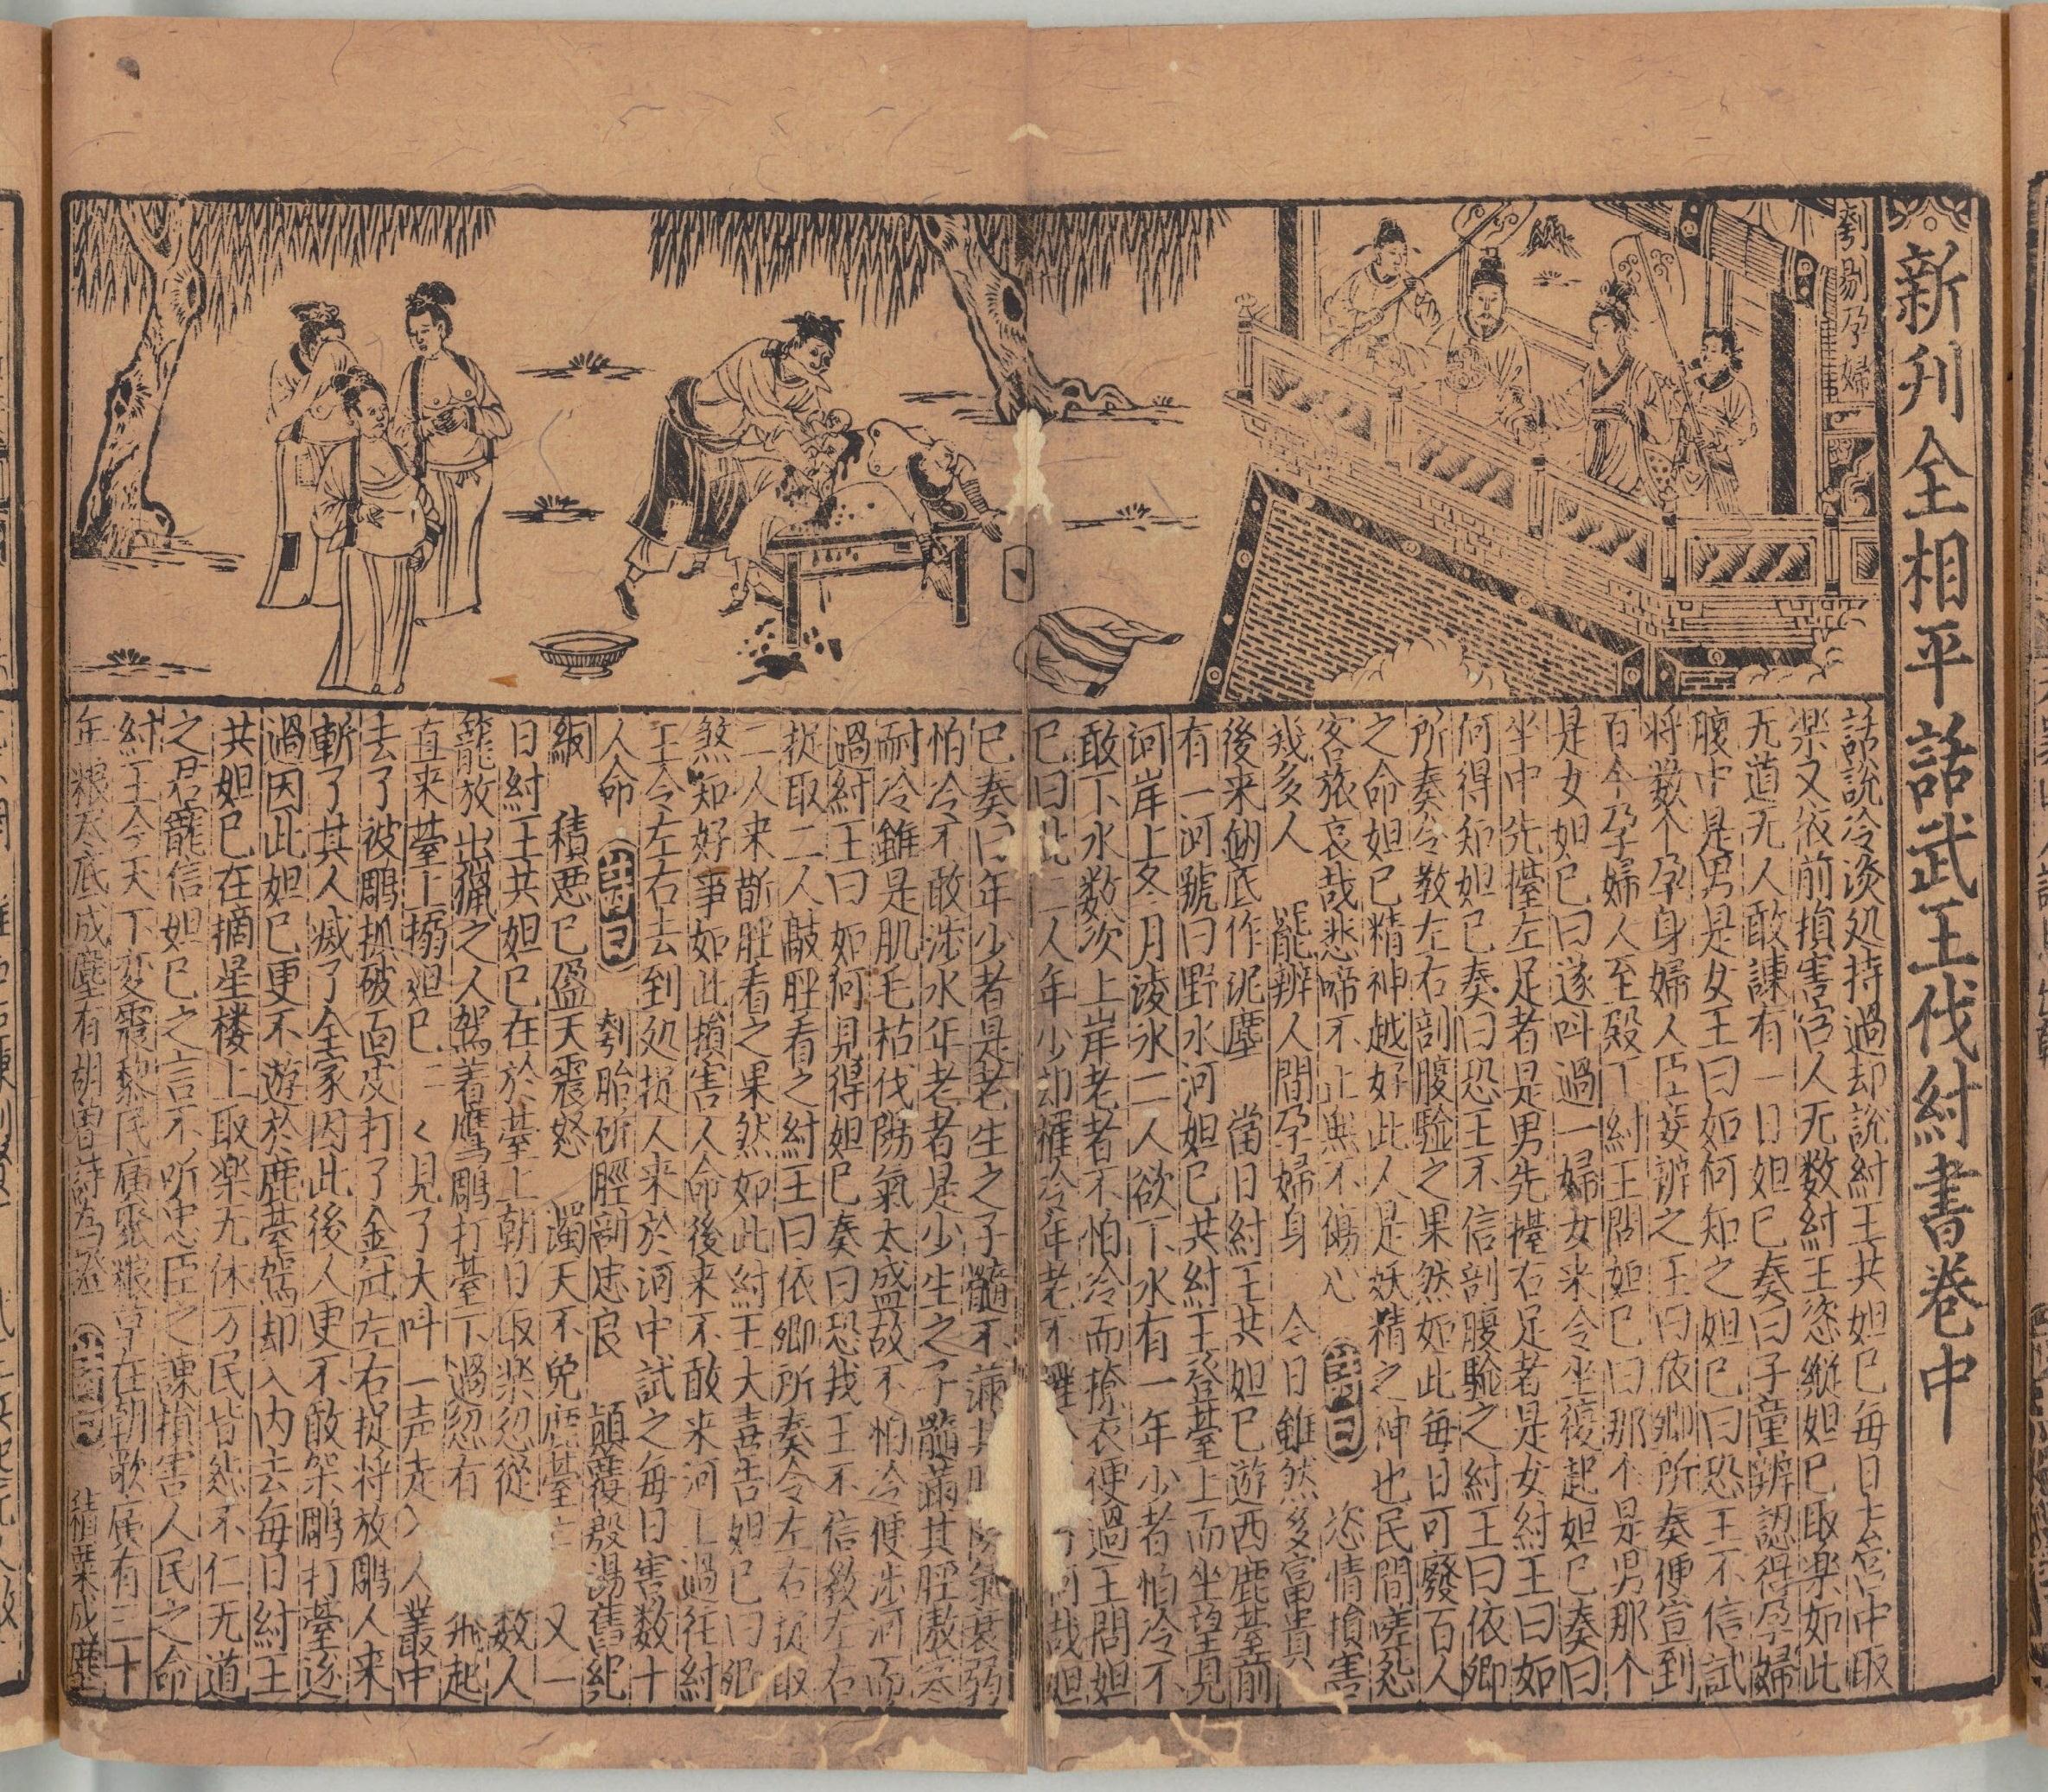 新刋全相平話武王伐紂書卷中
刳剔孕婦
話說冷淡处持過却說紂王共妲巳每日去宫中取
樂又依前損害宫人无数紂王恣縱妲巳取樂如此
无道无人敢諫有一日妲巳奏曰子童辨認得孕婦
腹中是男是女王曰如何知之妲巳曰恐王不信試
将数个孕身婦人臣妾辨之王曰依卿所奏便宣到
百个孕婦人至殿下紂王問妲巳曰那个是男那个
是女妲巳曰遂呌過一婦女来令坐復起妲巳奏曰
坐中先擡左足者是男先擡右足者是女紂王曰如
何得知妲巳奏曰恐王不信剖腹驗之紂王曰依卿
所奏令教左右剖腹驗之果然如此每日可廢百人
之命妲巳精神越好此人是妖精之神也民間嗟怨
客旅哀哉悲啼不止無不傷心 詩曰 恣情損害
幾多人 能辨人間孕婦身 今日雖然多富貴
後来個底作泥塵 當日紂王共妲巳遊西鹿臺前
有一河號曰野水河妲巳共紂王登臺上而坐望見
河岸上冬月凌氷二人欲下水有一年少者怕冷不
敢下水数次上岸老者不怕冷而撩衣便過王問妲
巳曰此二人年少却懼冷年老不懼 何哉妲
巳奏曰年少者是老生之子髓不滿其 陽氣衰弱
怕冷不敢涉水年老者是少生之子髓滿其脛傲寒
耐冷雖是肌毛枯伐陽氣太盛故不怕冷便涉河而
過紂王曰如何見得妲巳奏曰恐我王不信教左右
捉取二人敲脛看之紂王曰依卿所奏令左右捉取
二人来斮脛看之果然如此紂王大喜告妲巳曰卿
煞知好事如此損害人命後来不敢来河上過往紂
王令左右去到処捉人来於河中試之每日害数十
人命 詩曰 刳胎斫脛剖忠良 顛覆殷湯舊紀
綱 積惡巳盈天震怒 濁天不免鹿臺亡 又一
日紂王共妲巳在於臺上朝日取樂忽從 数人
籠放出獵之人駕着鷹鵰打臺下過忽有 飛起
直来臺上搦妲巳二〻見了大呌一声走入人叢中
去了被鵰抓破面皮打了金冠左右捉将放鵰人来
斬了其人滅了全家因此後人更不敢架鵰打臺逐
過因此妲巳更不遊於鹿臺駕却入内去每日紂王
共妲巳在摘星楼上取樂无休万民皆怨不仁无道
之君寵信妲巳之言不听忠臣之諫損害人民之命
紂王令天下变震黎民廣聚粮草在朝歌廣有三十
年粮尽底成塵有胡曽詩為證 詩曰 積粟成塵